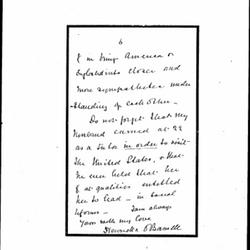 6
to bring America &
England into closer and
more sympathetic under
-standing of each other -
Do not forget that my
husband earned at 22
as a tutor in order to visit
the United States, & that
he ever held that her
great qualities entitled
her to lead - in social
reforms - I am always
Yours with my love
Henrietta O Barnett